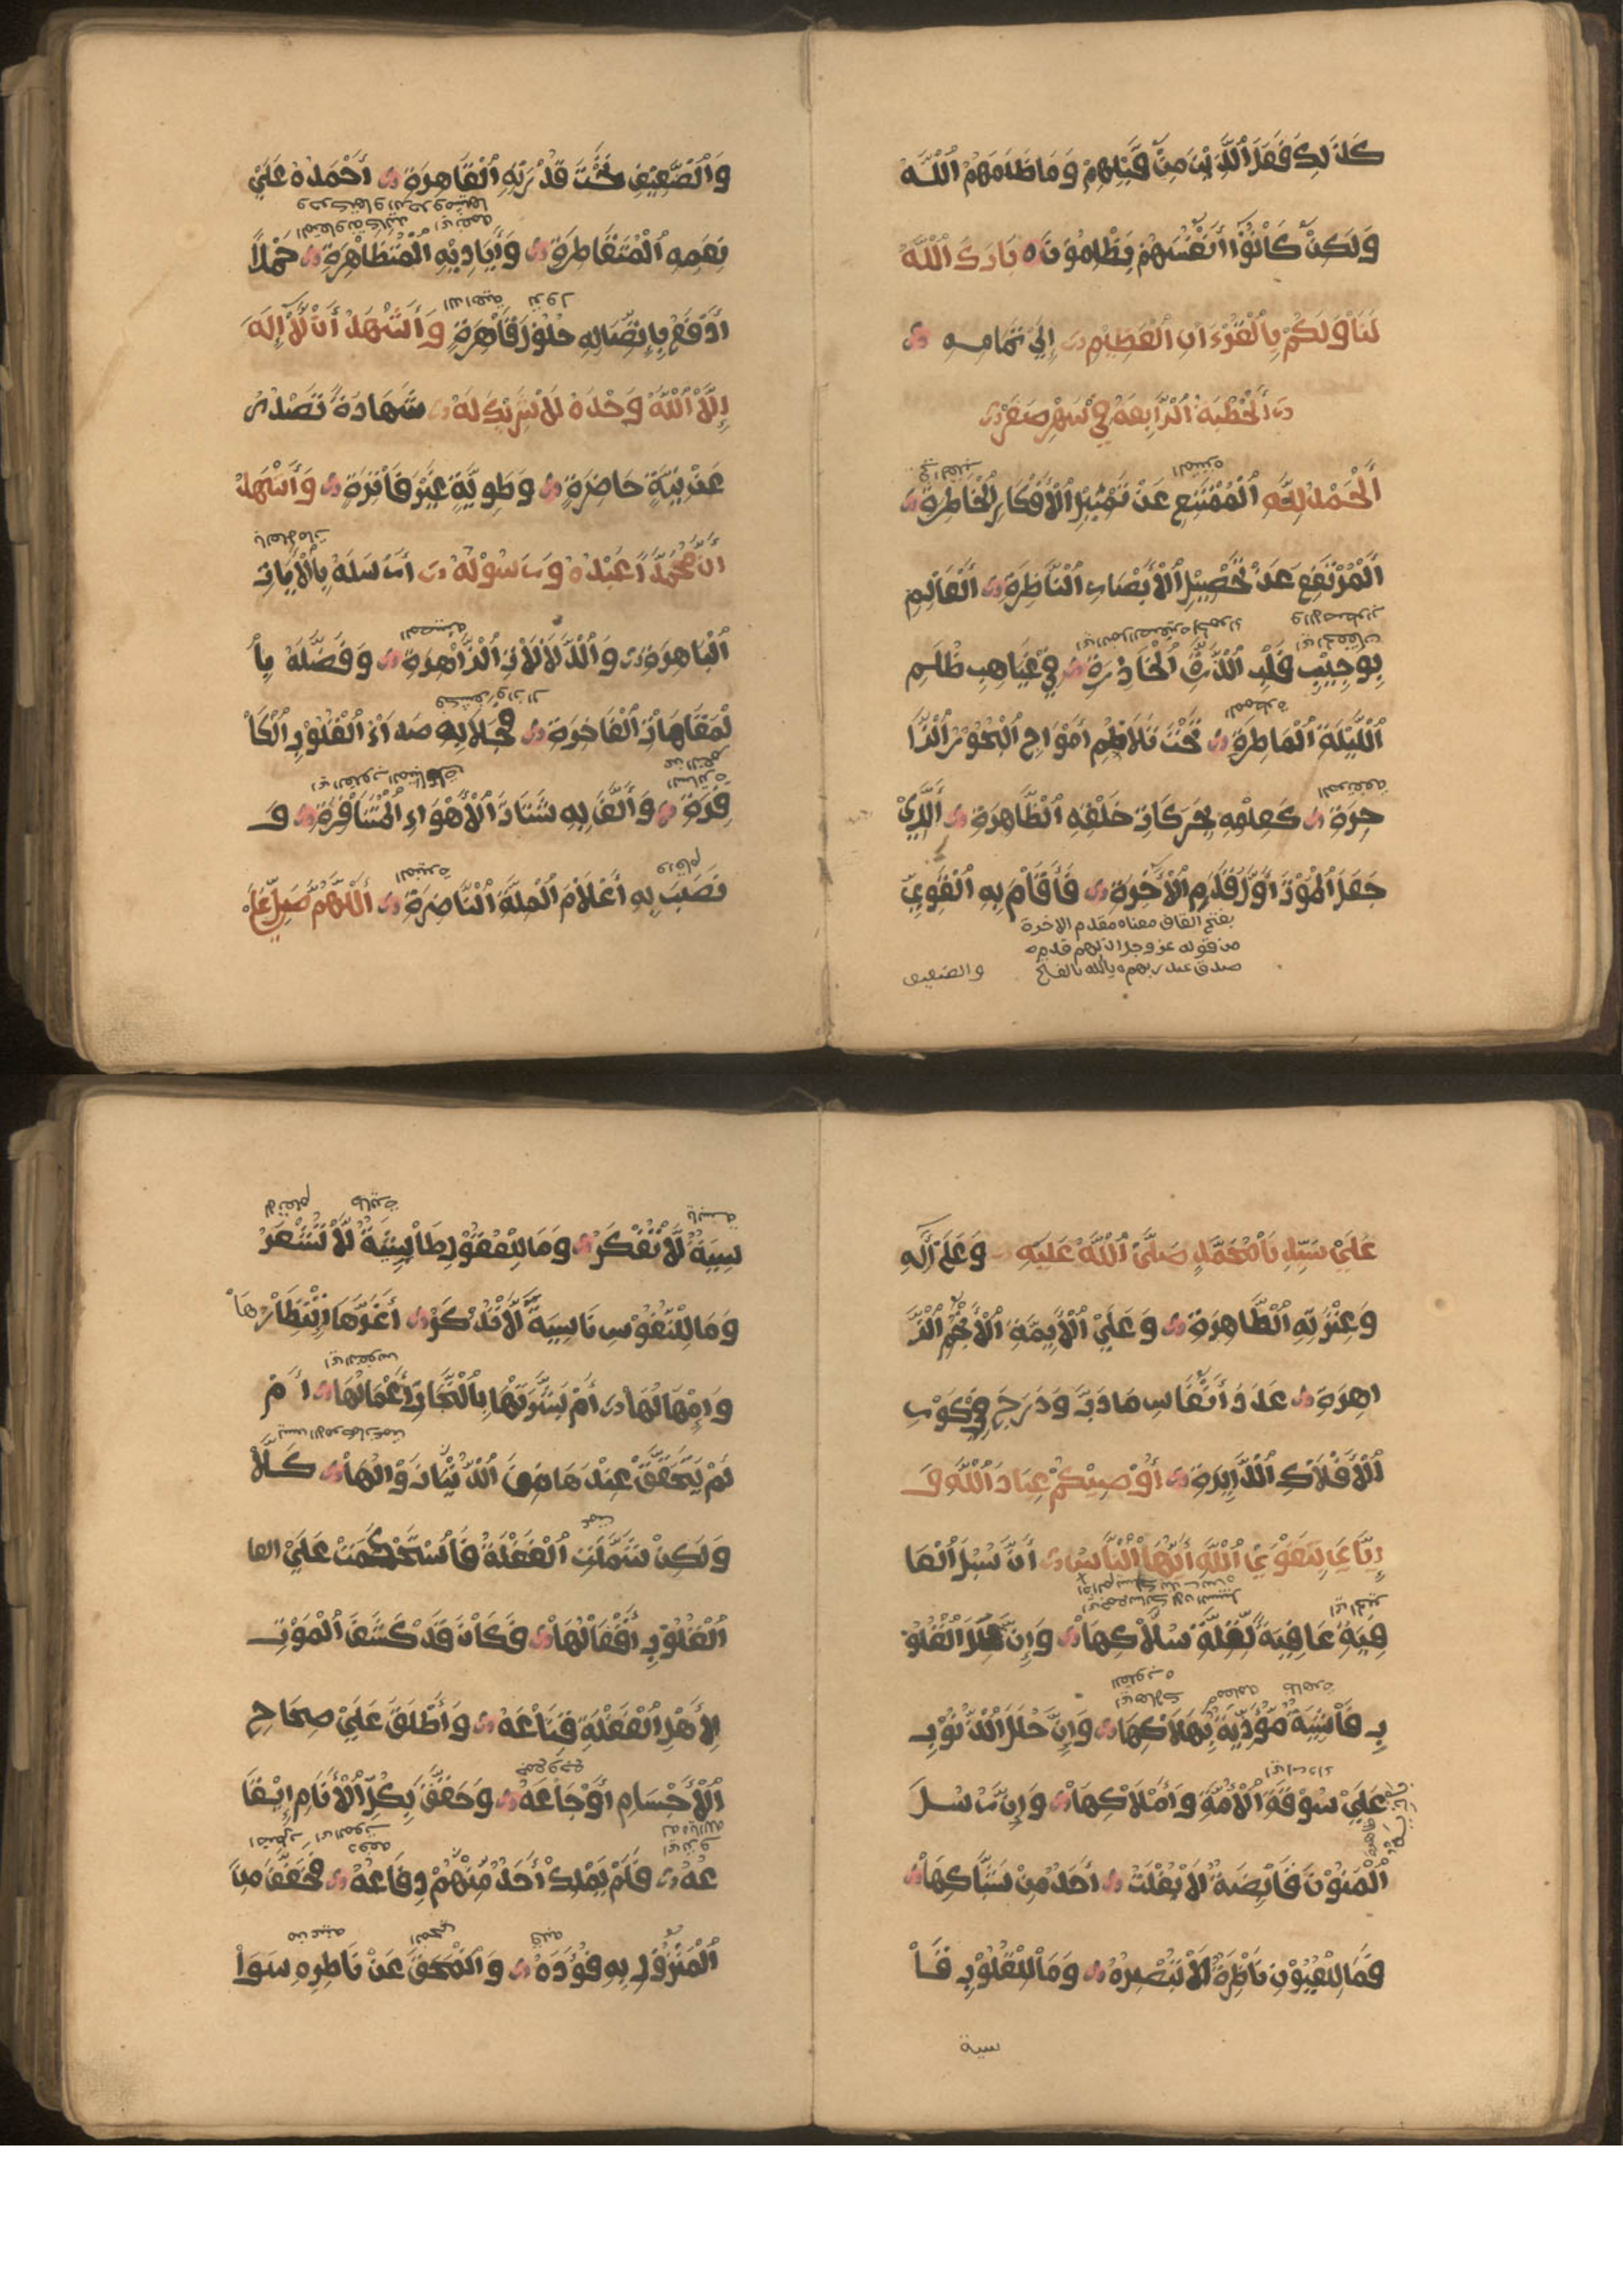 كَذَلِكَ فَعَلَ الَّذِينَ مِنْ قَبْلِهِمْ وَمَا ظَلَمَهُمُ اللَّهُ
وَلَكِنْ كَانُوْا أَنْفُسَهُمْ يَظْلِمُوْنَ بَارَكَ اللَّهُ
لَنَا وَلَكُمْ بِالْقُرْءَانِ الْعَظِيْمِ إِلَى تَمَامِهِ
الْخُطْبَةُ الرَّابِعَةُ فِي شَهْرِ صَفَرْ
المنيرة
اَلْحَمْدُ لِلَّهِ الْمُمْتَنِعِ عَنْ تَمْثِيْلِ الْأَفْكَارِ الْخَاطِرَةِ
اَلْمُرْتَفِعِ عَنْ تَحْصِيْلِ الْأَبْصَارِ النَّاظِرَةِ الْعَالِمِ
بِوَجِيْبِ قَلْبِ الذَّرَّةِ الْحَاذِرَةِ فِيْ غَيَاهِبِ ظُلَمِ
الممطرة
اللَّيْلَةِ الْمَاطِرَةِ تَحْتَ تَلَاطُمِ أَمْوَاجِ الْبُحُوْرِ الزَّا
المرتفعة
خِرَةِ كَعِلْمِهِ بِحَرَكَاتِ خَلْقِهِ الظَّاهِرَةِ اَلَّذِيْ
جَعَلَ الْمَوْتَ أَوَّلَ قَدَمِ الْأَخِرَةِ فَأَقَامَ بِهِ الْقَوِيَّ
بفتح القاف معناه مقدم الاخرة
من قوله عز وجل ان لهم قدم
صدق عند ربهم
والضعيف
وَالضَّعِيْفِ تَحْتَ قُدْرَتِهِ الْقَاهِرَةِ أَحْمَدُهُ عَلَى
نِعَمِهِ الْمُتَقَاطِرَةِ وَأَيَادِيْهِ الْمُتَظَاهِرَةِ حَمْدًا
نزول الداهية
أَدْفَعُ بِاتِّصَالِهِ حُلُوْلَ فَاقِرَةٍ وَأَشْهَدُ أَنْ لَا إِلَهَ
إِلَّا اللَّهُ وَحْدَهُ لَا شَرِيْكَ لَهُ شَهَادَةً تَصْدُرُ
عَنْ نِيَّةٍ حَاضِرَةٍ وَطَوِيَّةٍ غَيْرِ فَاتِرَةٍ وَأَشْهَدُ
بالعلامات
أَنَّ مُحَمَّدًا عَبْدُهُ وَرَسُوْلُهُ أَرْسَلَهُ بِالْأَيَاتِ
المضيئة
الْبَاهِرَةِ وَالدَّلَالَاتِ الزَّاهِرَةِ وَفَضَّلَهُ بِا
لْمَقَامَاتِ الْفَاخِرَةِ فَجَلَا بِهِ صَدَأَ الْقُلُوْبِ الْكَا
فِرَةِ وَأَلَّفَ بِهِ شَتَاتَ الْأَهْوَاءِ الْمُتَنَافِرَةِ وَ
واقام المنيرة
نَصَبَ بِهِ أَعْلَامَ الْمِلَّةِ النَّاضِرَةِ اَللَّهُمَّ صَلِّ عَلَى
عَلَى سَيِّدِنَا مُحَمَّدٍ صَلَّى اللَّهُ عَلَيْهِ وَعَلَى آلِهِ
وَعِتْرَتِهِ الطَّاهِرَةِ وَعَلَى الْأَئِمَّةِ الْأَنْجُمِ الزَّ
اهِرَةِ عَدَدَ أَنْفَاسِ مَا دَبَّ وَدَرَجَ فِيْ كَوْرِ
الْأَفْلَاكِ الدَّائِرَةِ أُوْصِيْكُمْ عِبَادَ اللَّهِ وَ
إِيَّايَ بِتَقْوَى اللَّهِ أَيُّهَا النَّاسُ أَنَّ سُبُلَ الْعَا
فِيَةِ عَافِيَةٌ لِقِلَّةِ سُلَّاكِهَا وَإِنَّ عِلَلَ الْقُلُوْ
بِ قَاسِيَةٌ مُؤْذِنَةٌ بِهَلَاكِهَا وَإِنَّ حُلَلَ الذُّنُوْبِ
عَلَى سُوْقَةِ الْأُمَّةِ وَأَمْلَاكِهَا وَإِنَّ رُسُلَ
الْمَنُوْنَ قَانِصَةٌ لَا يُفْلِتُ أَحَدٌ مِنْ شِبَاكِهَا
فَمَا لِلْعُيُوْنِ نَاظِرَةً لَا تُبْصِرُهُ وَمَا لِلْقُلُوْبِ قَا
سية
يابسة طائرة
سِيَةً لَا تُفَكِّرْ وَمَا لِلْعُقُوْلِ طَائِشَةً لَا تَشْعُرْ
وَمَا لِلنُّفُوْسِ نَاسِيَةً لَا تَذْكُرْ أَغَرَّهَا إِنْظَارُهَا
وَإِمْهَالُهَا أَمْ بَشَّرَتْهَا بِالنَّجَاةِ أَعْمَالُهَا أَمْ
لَمْ يَتَحَقَّقْ عِنْدَهَا مِنَ الدُّنْيَا زَوَالُهَا كَلَّا
وَلَكِنْ شَمَلَتِ الْغَفْلَةُ فَاسْتَحْكَمَتْ عَلَى الها
الْقُلُوْبِ أَقْفَالُهَا فَكَأَنْ قَدْ كَشَفَ الْمَوْتُ
لِأَهْلِ الْغَفْلَةِ قِنَاعَهُ وَأَطْلَقَ عَلَى صِحَاحِ
الْأَجْسَامِ أَوْجَاعَهُ وَحَقَّقَ بِكُلِّ الْأَنَامِ إِيْقَا
عُهُ فَلَمْ يَمْلِكْ أَحَدٌ مِنْهُمْ دِفَاعَهُ فَخَفَقَ مِنَ
قلبه من عينه
الْمَنْزُوْلِ بِهِ فُؤَادُهُ وَانْمَحَقَ عَنْ نَاظِرِهِ سَوَا